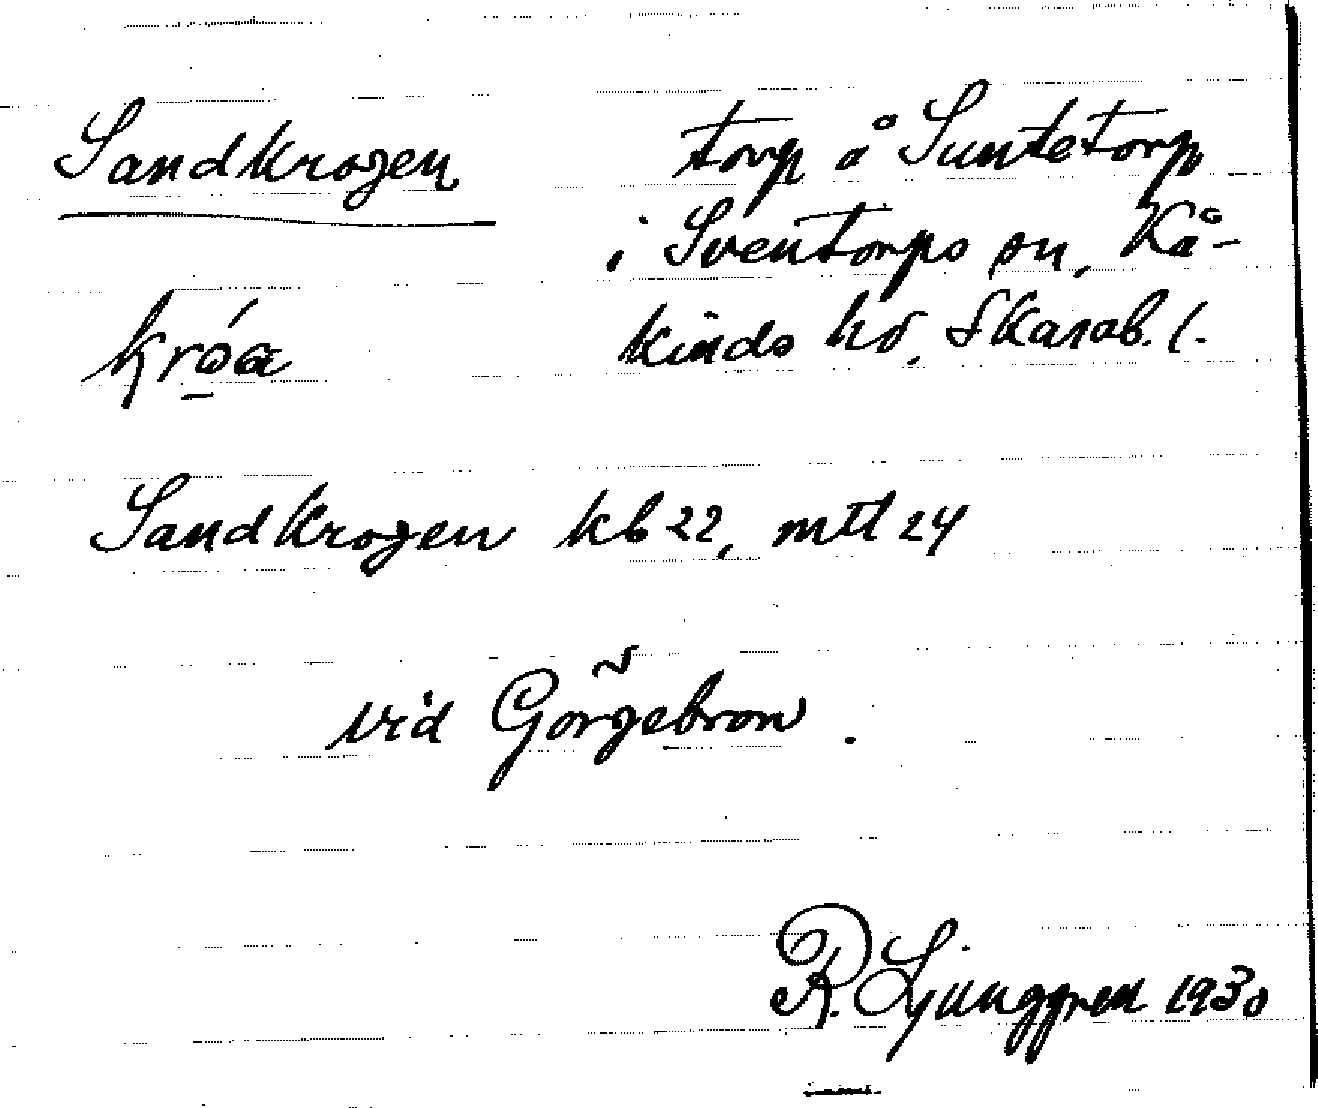 Sandkrogen
torp å Suntetorp
i Sventorps sn, Kå-
kinds hd, Skarab. l.
Sandkrogen kb 22, mtl 24
vid Görgebron.
R. Ljunggren 1930